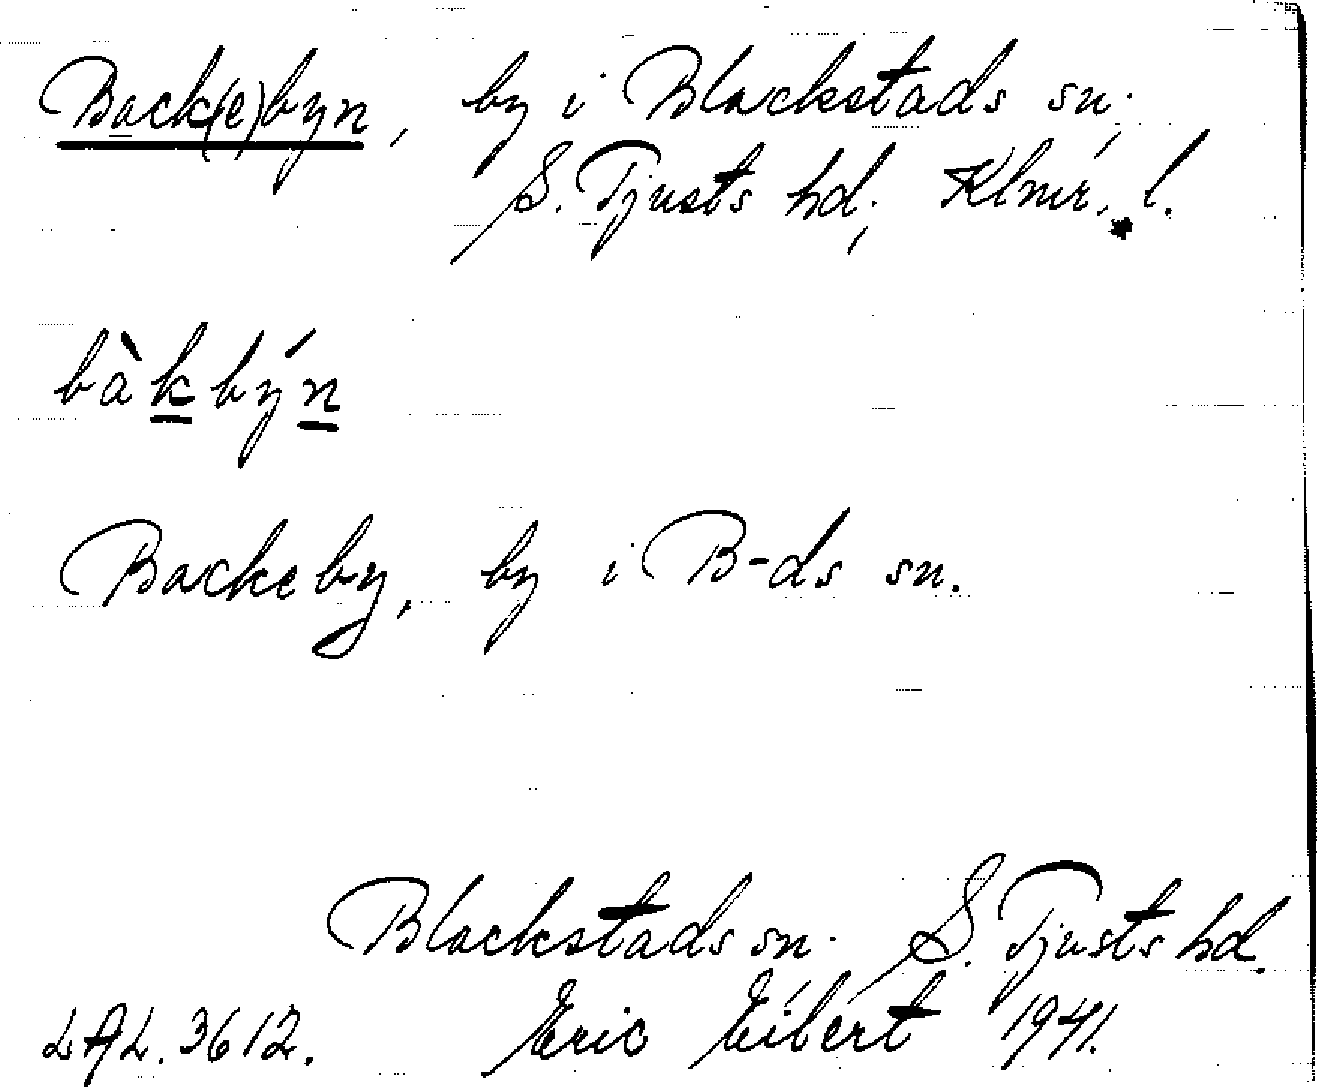 Back(e)byn, by i Blackstads sn.,
S. Tjusts hd., Klmr. l.
bàkbýn
Backeby, by i B-ds sn.
Blackstads sn. S. Tjusts hd.
LAL. 3612. Eric Eibert 1941.